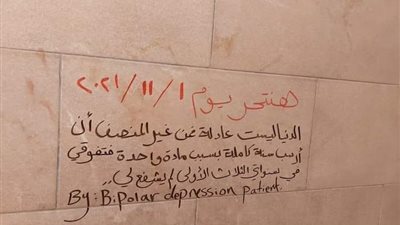 هنتحر يوم ٢٠٢١/١١/١
الدنيا ليست عادلة من غير المنصف أن
أرسب سنة كاملة بسبب مادة واحدة فتفوقي
في سنواتي الثلاث الأولى لم يشفع لي..
By: Bipolar depression patient.